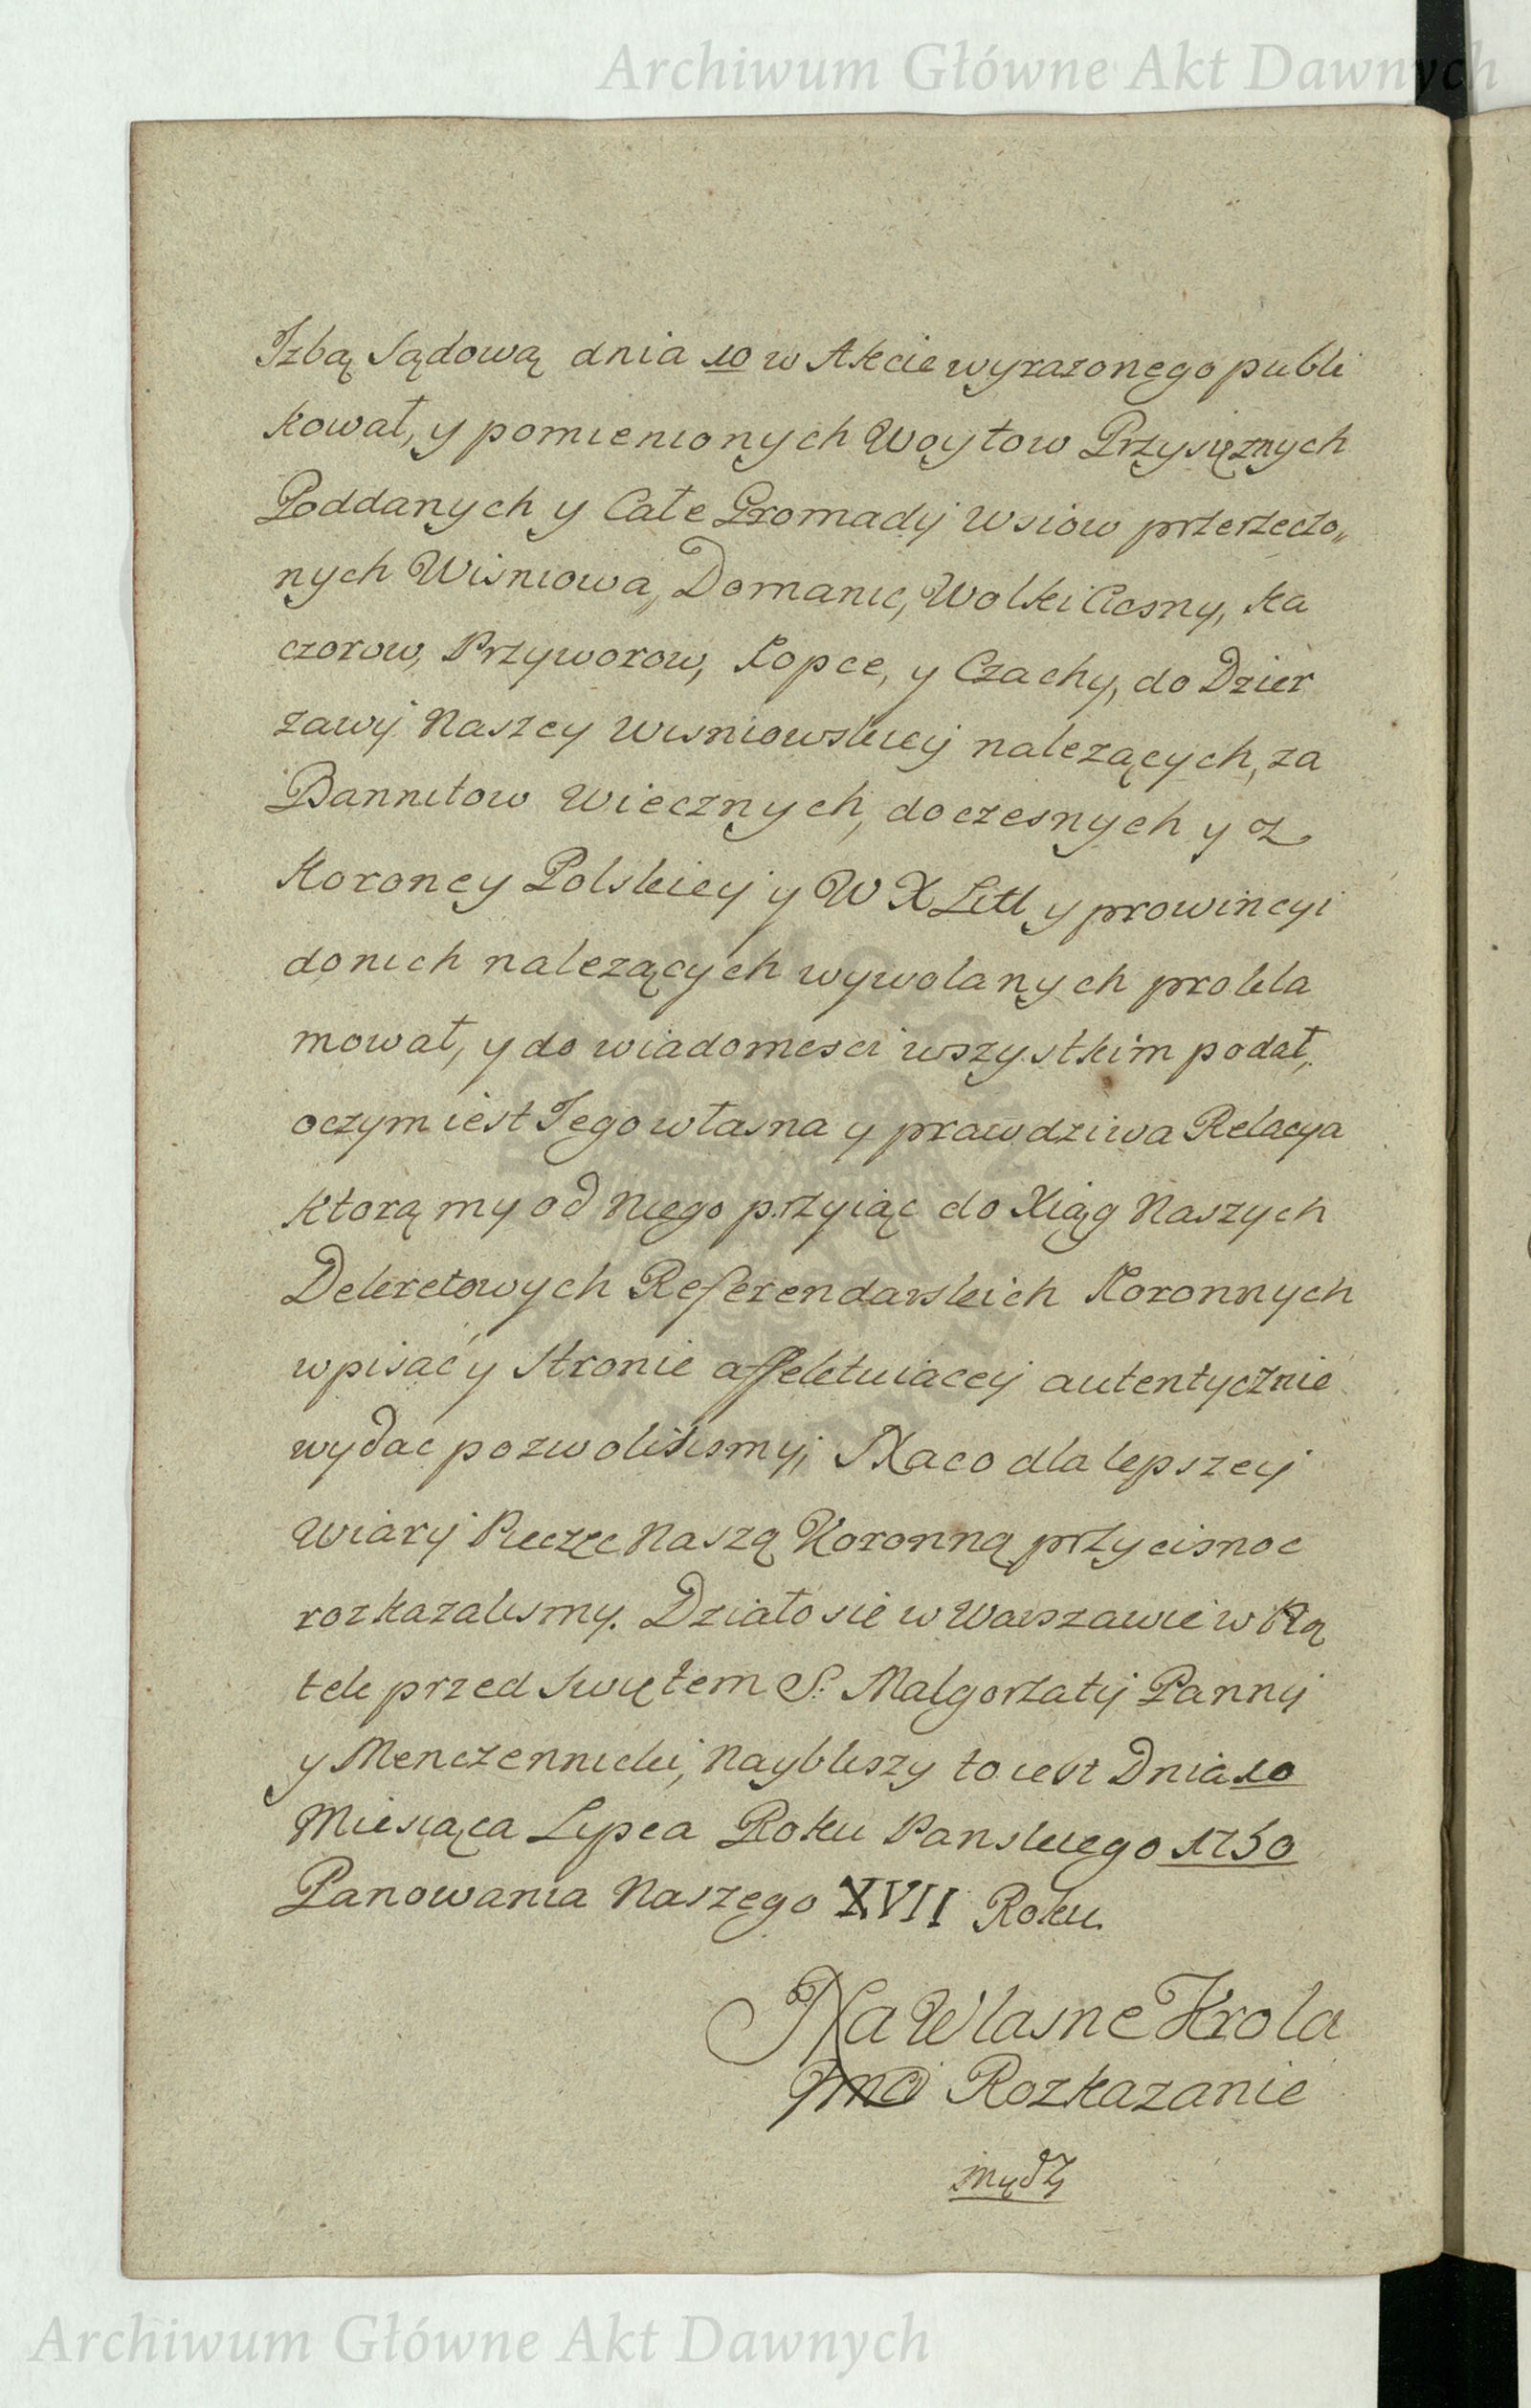 Archiwum Główne Akt Dawnych
Izbą Sądową dnia 10 w Akcie wyrazonego publi
kował, y pomienionych Woytow Przysięznych
Poddanych y Całe Gromady Wsiow przerzeczo„
nych Wisniowa, Domanic, Wolki Ciosny, Ka
czorow, Przyworow, Kopce, y Czachy, do Dzier
zawy Naszey Wisniowskiey nalezących, za
Bannitow Wiecznych, doczesnych y z
Koroney Polskiey y W X Litt y prowincyi
do nich nalezących wywolanych prokla
mował, y do wiadomosci wszystkim podał,
oczym iest Jego własna y prawdziwa Relacya
ktorą my od Niego przyiąc do Xiąg Naszych
Dekretowych Referendarskich Koronnych
wpisać y Stronie affektuiacey autentycznie
wydac pozwolilismy, Na co dla lepszey
Wiary Pieczęc Naszą Koronną przycisnoc
rozkazalismy. Działo sie w Warszawie w Pią
tek przed Swiętem S. Malgorzaty Panny
y Menczennicki, Naybliszy to iest Dnia 10
Miesiąca Lypca Roku Panskiego 1750
Panowania Naszego XVII Roku.
Na Wlasne Krola
Jmci Rozkazanie
Archiwum Główne Akt Dawnych